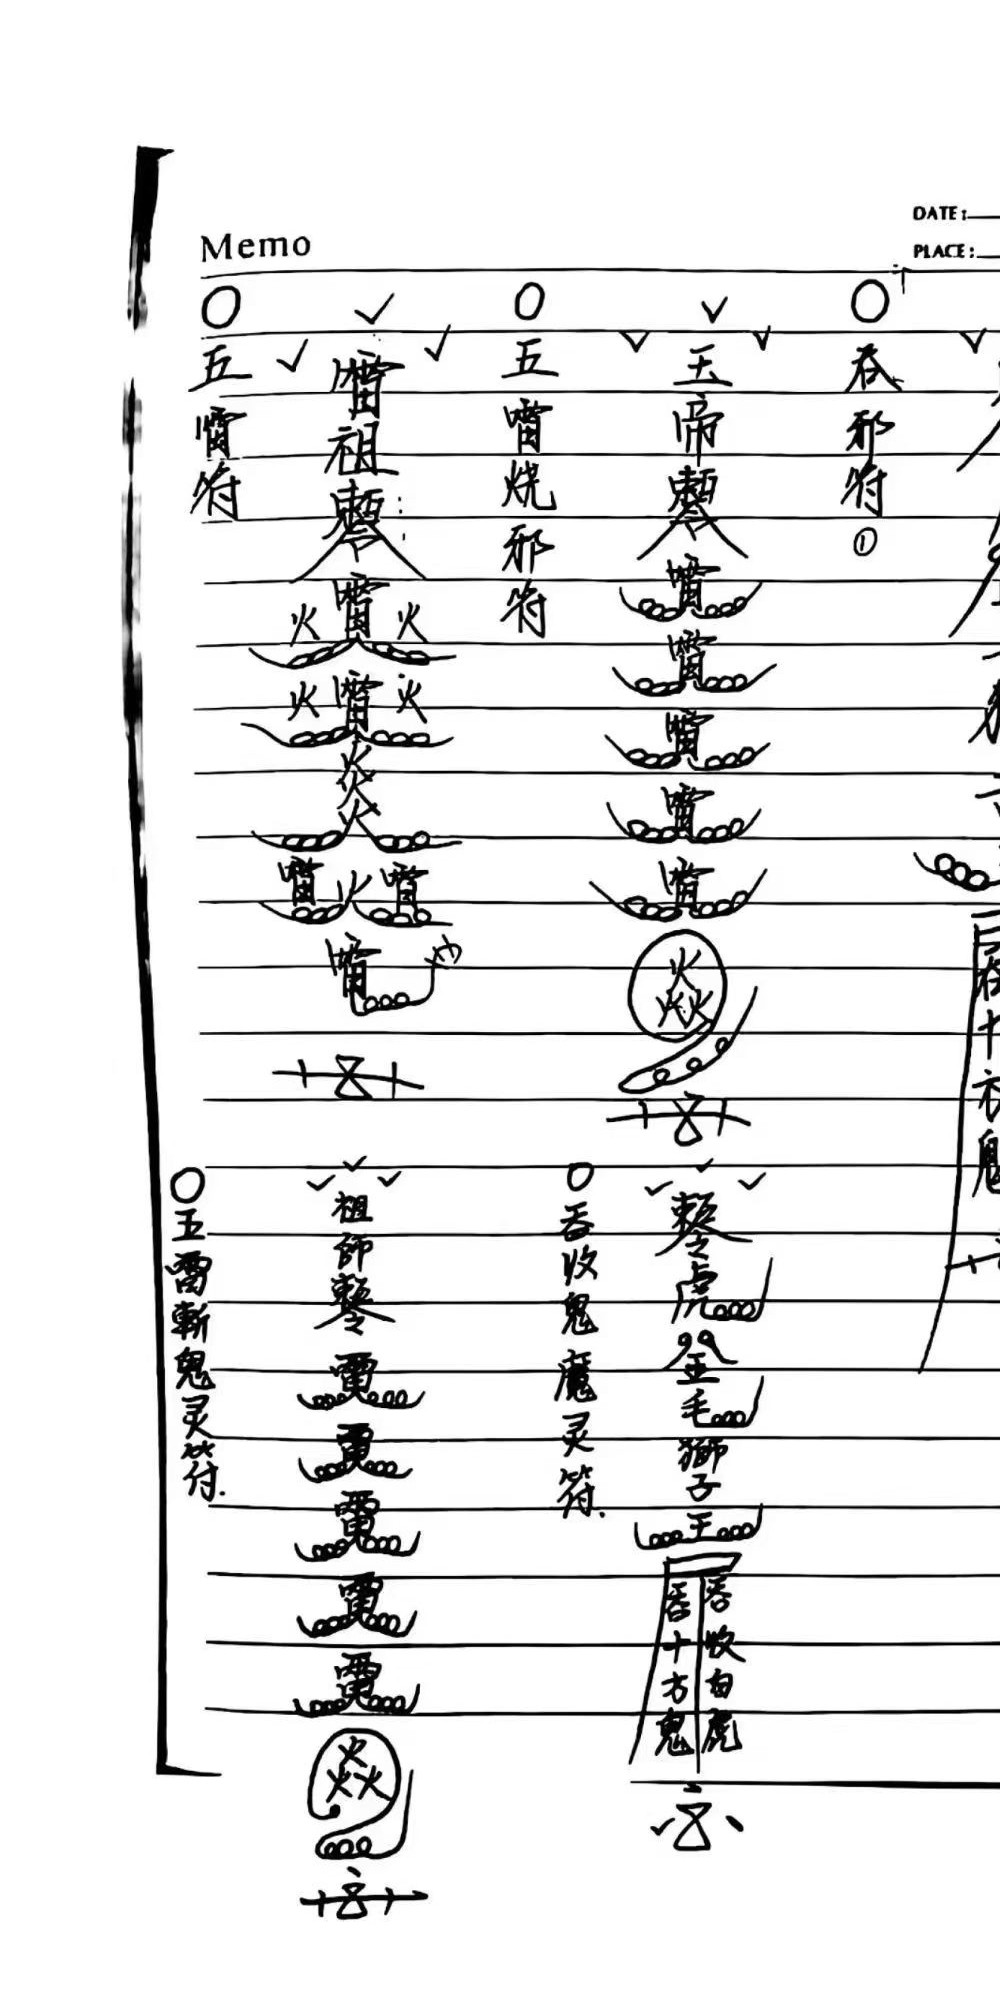 DATE:
PLACE:
Memo
五雷符
雷祖勅令
火雷火
火雷火
炎火
雷火雷
雷
五雷烧邪符
玉帝勅令
雷
雷
雷
雷
雷
焱
吞邪符①
五雷斬鬼灵符.
祖師勅令
雷
雷
雷
雷
雷
焱
吞收鬼魔灵符.
勅令虎
金毛獅子王
吞收白虎
吞十方鬼